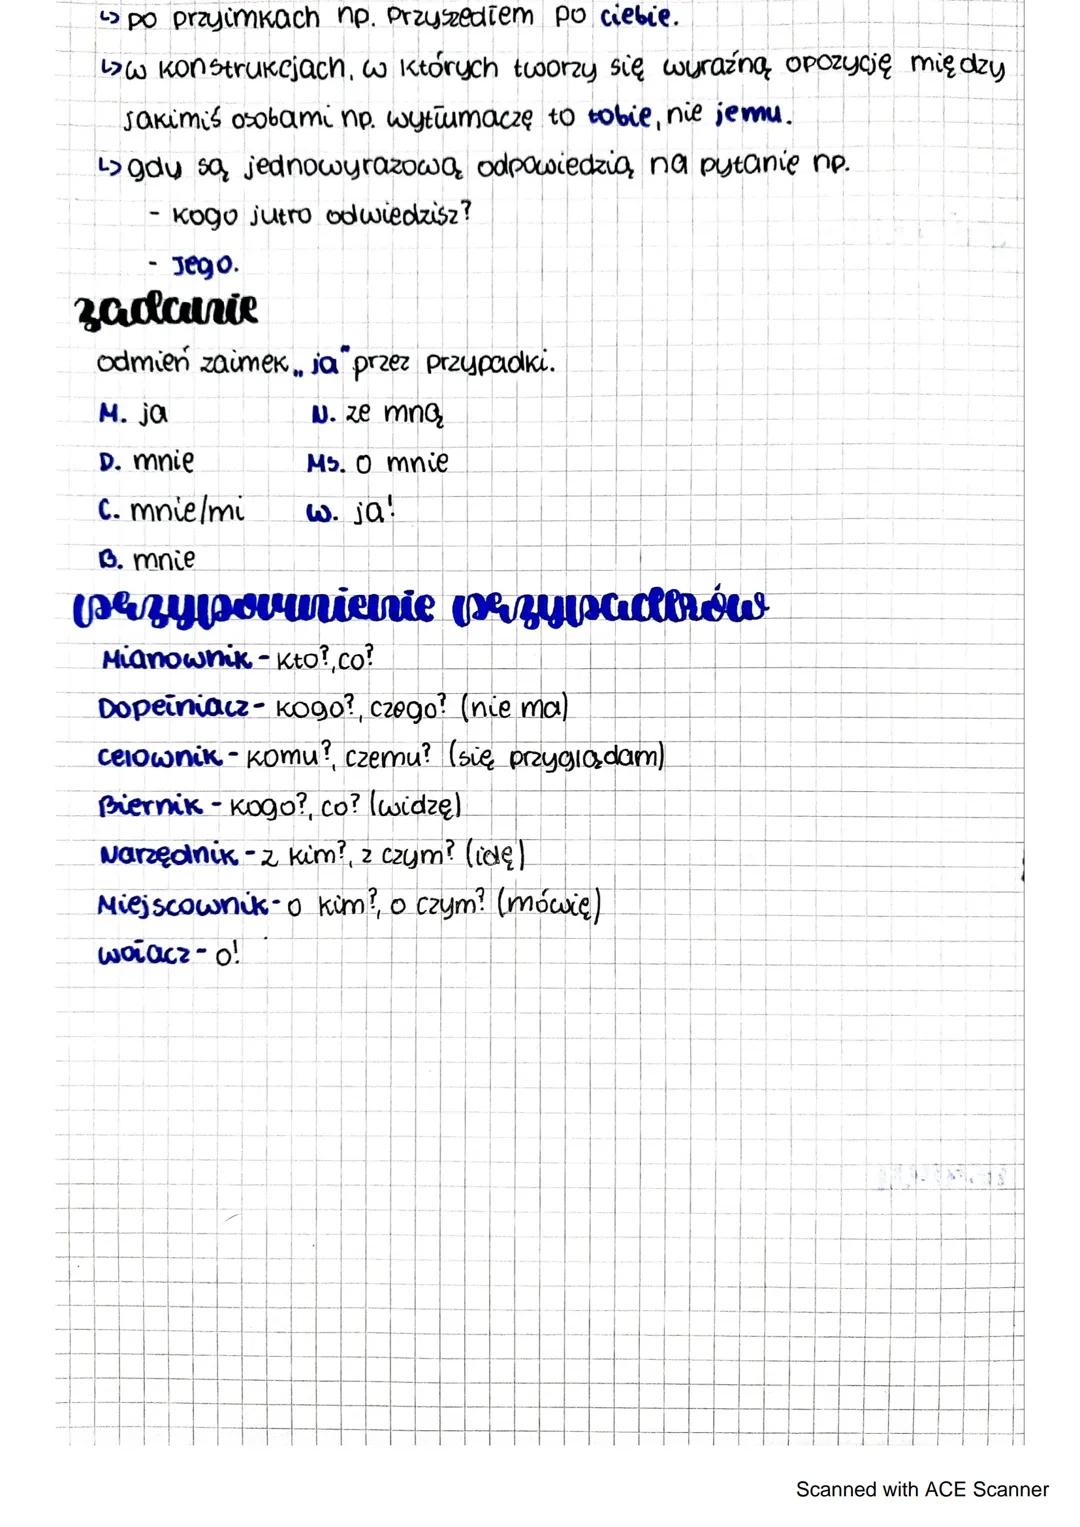 ↳ po przyimkach np. Przyszedłem po ciebie.
↳ w konstrukcjach, w których tworzy się wyraźną opozycję między
jakimiś osobami np. wytłumaczę to tobie, nie jemu.
↳ gdy są jednowyrazową odpowiedzią na pytanie np.
- Kogo jutro odwiedzisz?
- Jego.
zadanie
odmień zaimek „ja" przez przypadki.
M. ja N. ze mną
D. mnie Ms. o mnie
C. mnie/mi W. ja!
B. mnie
przypomnienie przypadków
Mianownik - kto?, co?
Dopełniacz - kogo?, czego? (nie ma)
Celownik - komu?, czemu? (się przyglądam)
Biernik - kogo?, co? (widzę)
Narzędnik - z kim?, z czym? (idę)
Miejscownik - o kim?, o czym? (mówię)
Wołacz - o!
Scanned with ACE Scanner